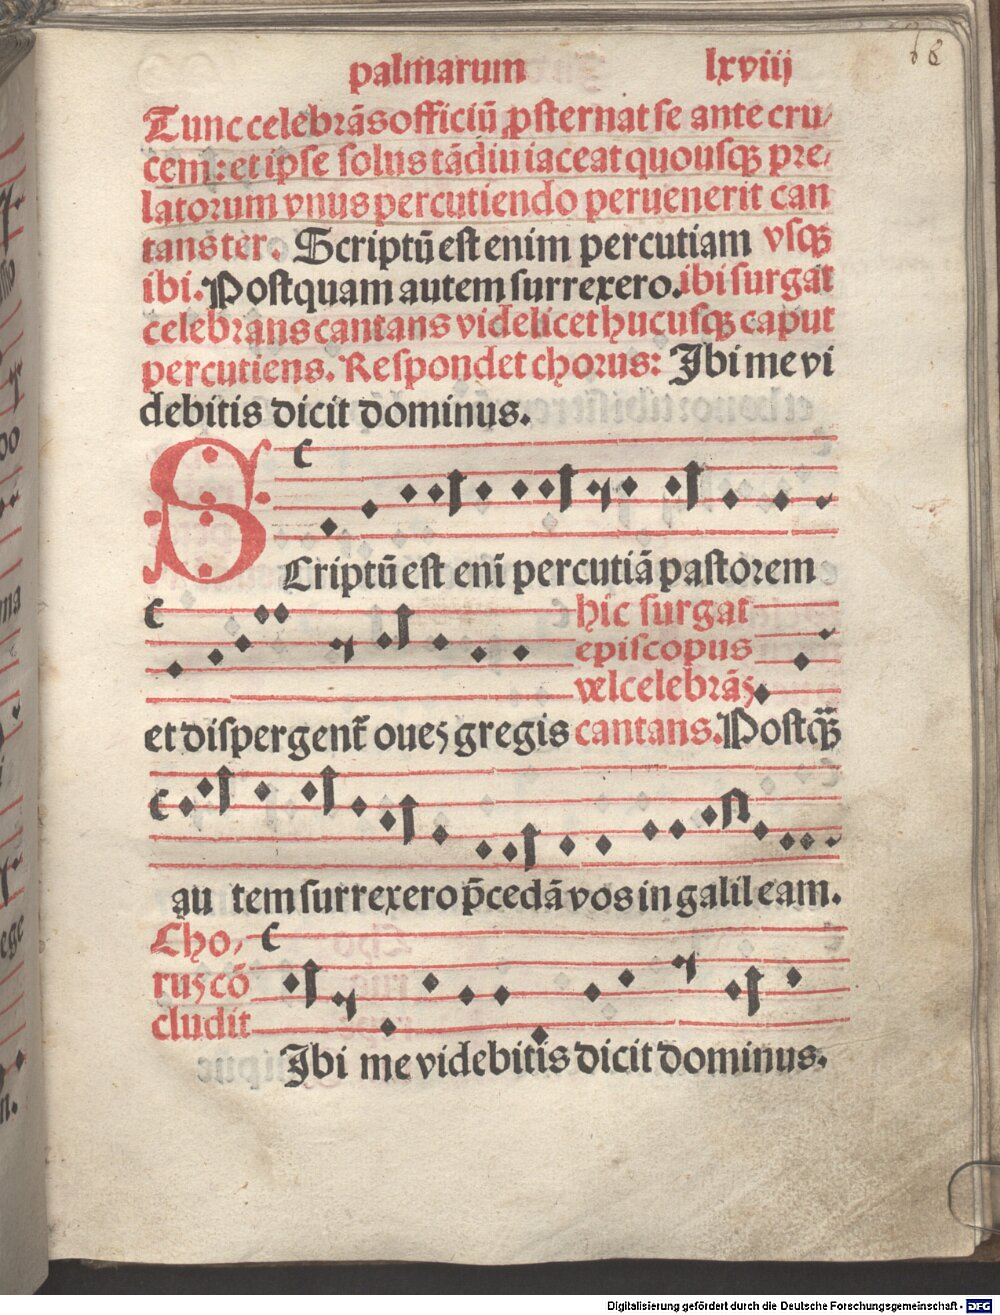 palmarum lxviij
68
Tunc celebrãs officiũ ꝓsternat se ante cru⸗
cem: et ipse solus tãdiu iaceat quousqꝫ pre⸗
latorum vnus percutiendo peruenerit can
tans ter. Scriptũ est enim percutiam vsqꝫ
ibi. Postquam autem surrexero. ibi surgat
celebrans cantans videlicet hucusqꝫ caput
percutiens. Respondet chorus: Ibi me vi
debitis dicit dominus.
SCriptũ est eni᷒ percutiã pastorem
hic surgat
episcopus
vel celebrãs
et dispergent̃ oues gregis cantans. Postqꝫ̃
au tem surrexero p̃cedã vos in galileam.
Cho⸗
rus cõ
cludit
Ibi me videbitis dicit dominus.
Digitalisierung gefördert durch die Deutsche Forschungsgemeinschaft - DFG